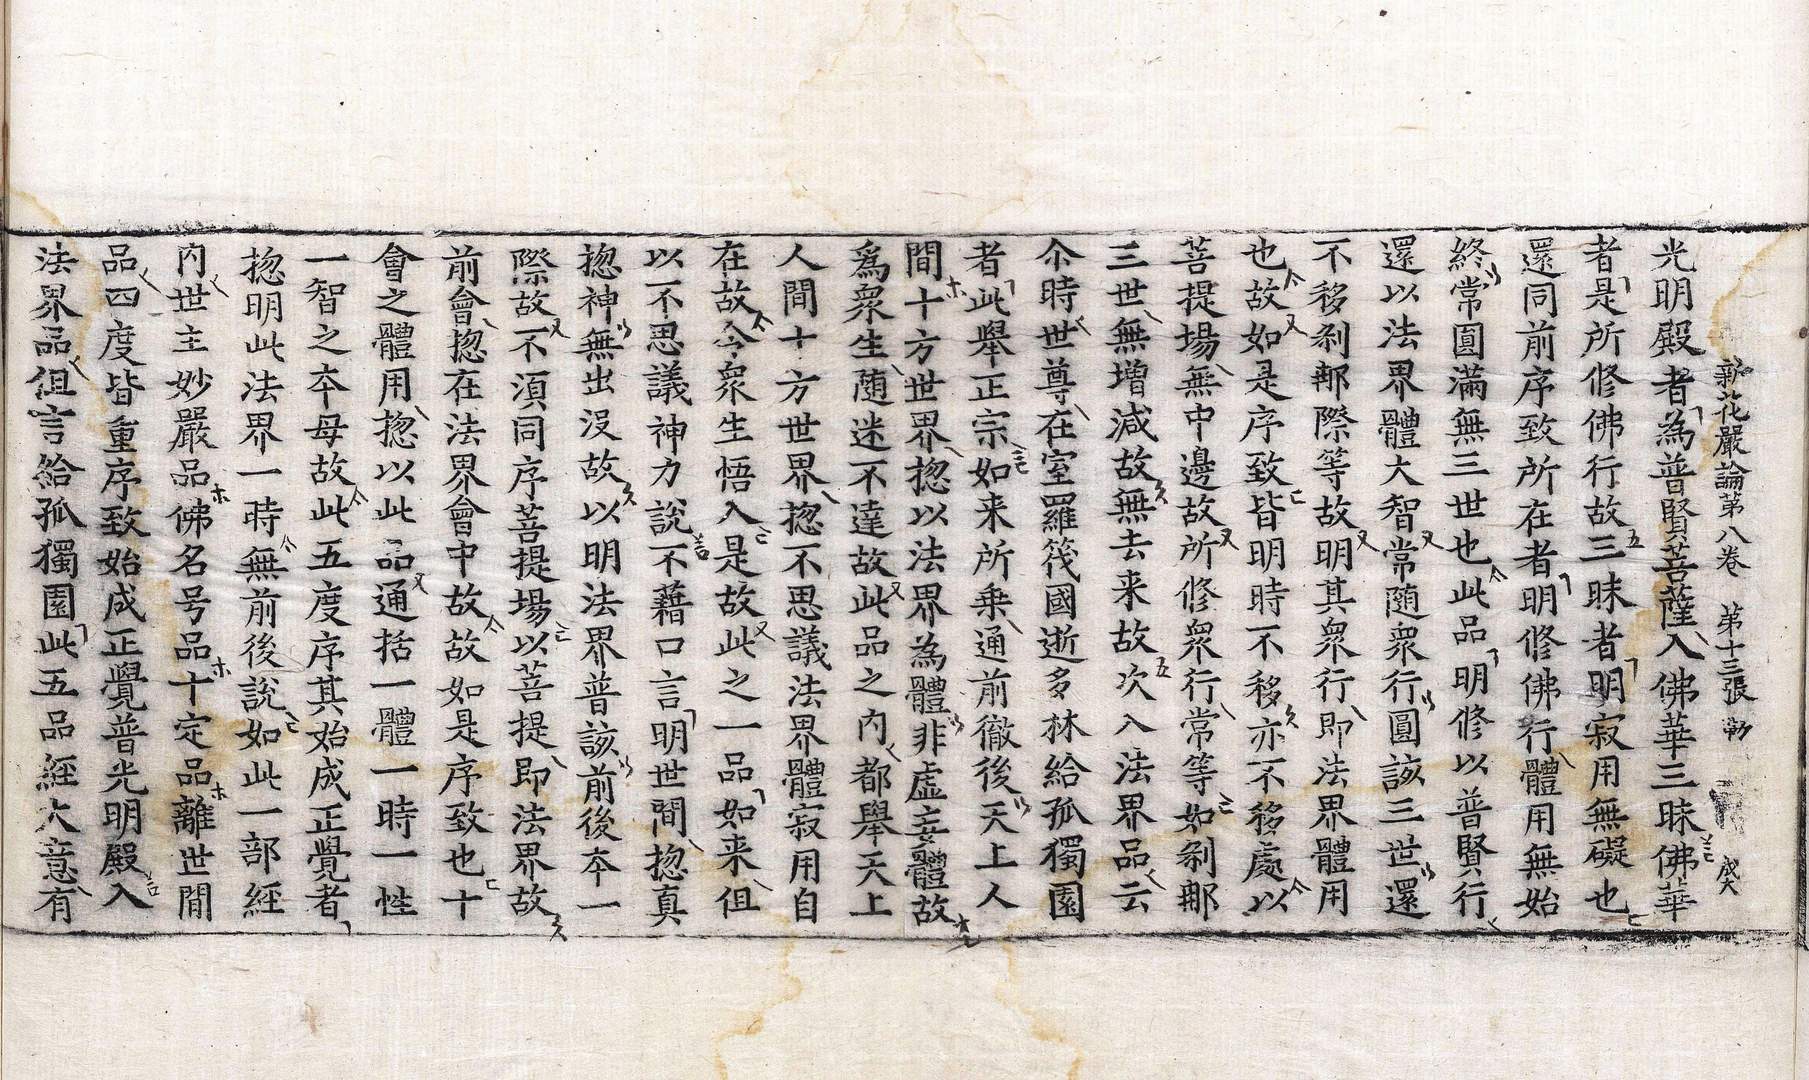 新花嚴論第八卷 第十三張 勒 成大
光明殿者為普賢菩薩入佛華三昧佛華
者是所修佛行故三昧者明寂用無礙也
還同前序致所在者明修佛行體用無始
終常圓滿無三世也此品明修以普賢行
還以法界體大智常随衆行圓該三世還
不移刹那際等故明其衆行即法界體用
也故如是序致皆明時不移亦不移處以
菩提場無中邊故所修衆行常等如刹那
三世無增減故無去来故次入法界品云
尒時世尊在室羅筏國逝多林給孤獨園
者此舉正宗如来所乗通前徹後天上人
間十方世界揔以法界為體非虛妄體故
爲衆生随迷不達故此品之內都舉天上
人間十方世界揔不思議法界體寂用自
在故令衆生悟入是故此之一品如来但
以不思議神力說不藉口言明世間揔真
揔神無出沒故以明法界普該前後夲一
際故不湏同序菩提場以菩提即法界故
前會揔在法界會中故故如是序致也十
會之體用揔以此品通括一體一時一性
一智之夲母故此五度序其始成正覺者
揔明此法界一時無前後說如此一部經
內世主妙嚴品佛名号品十定品離世間
品四度皆重序致始成正覺普光明殿入
法界品但言給孤獨園此五品經大意有